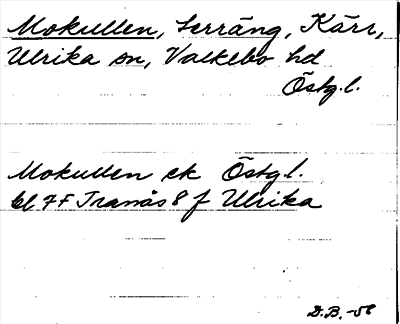 Mokullen, Terräng, Kärr,
Ulrika sn, Valkebo hd
Östg.l.
Mokullen ek Östg.l.
bl 7F Tranås 8 f Ulrika
D.B. -58